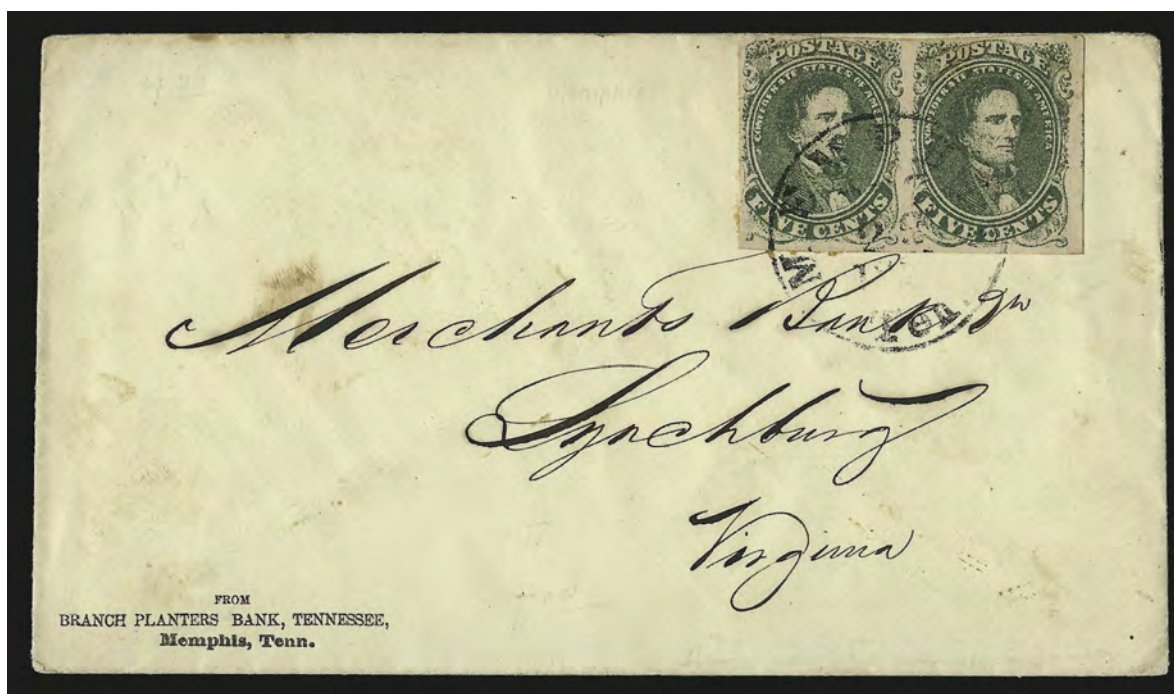 POSTAGE
CONFEDERATE STATES OF AMERICA
FIVE CENTS
POSTAGE
CONFEDERATE STATES OF AMERICA
FIVE CENTS
Merchants Bank
Lynchburg
Virginia
FROM
BRANCH PLANTERS BANK, TENNESSEE,
Memphis, Tenn.